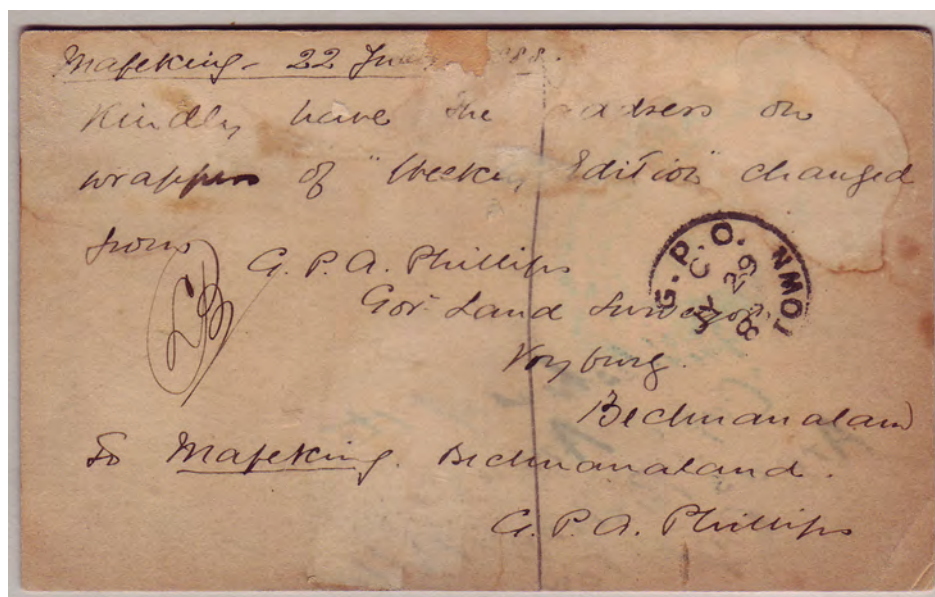 Mafeking - 22 Ju 88.
Kindly have the address on
wrapper of "Weekly Edition" changed
from
G. P. A. Phillips
Govt Land Surveyor
Vryburg.
Bechuanaland
To Mafeking. Bechuanaland.
G. P. A. Phillips
G. P. O. TOWN
C
29
88